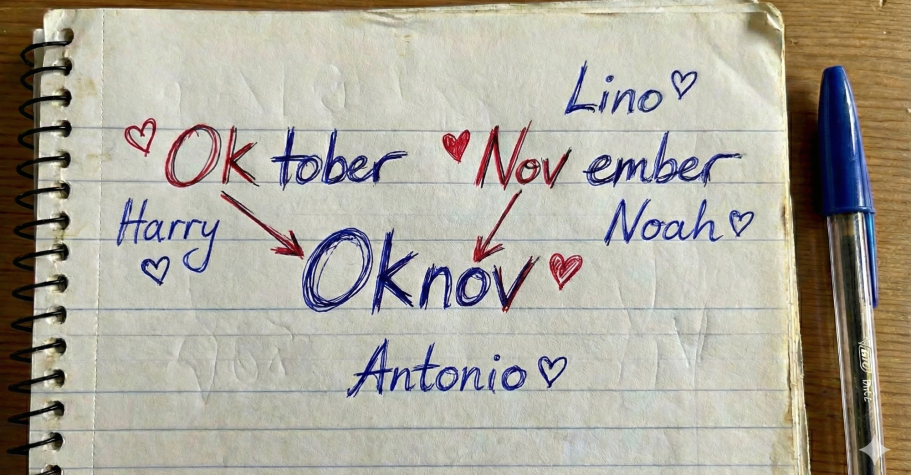 Lino
Ok tober Nov ember
Harry Noah
Oknov
Antonio